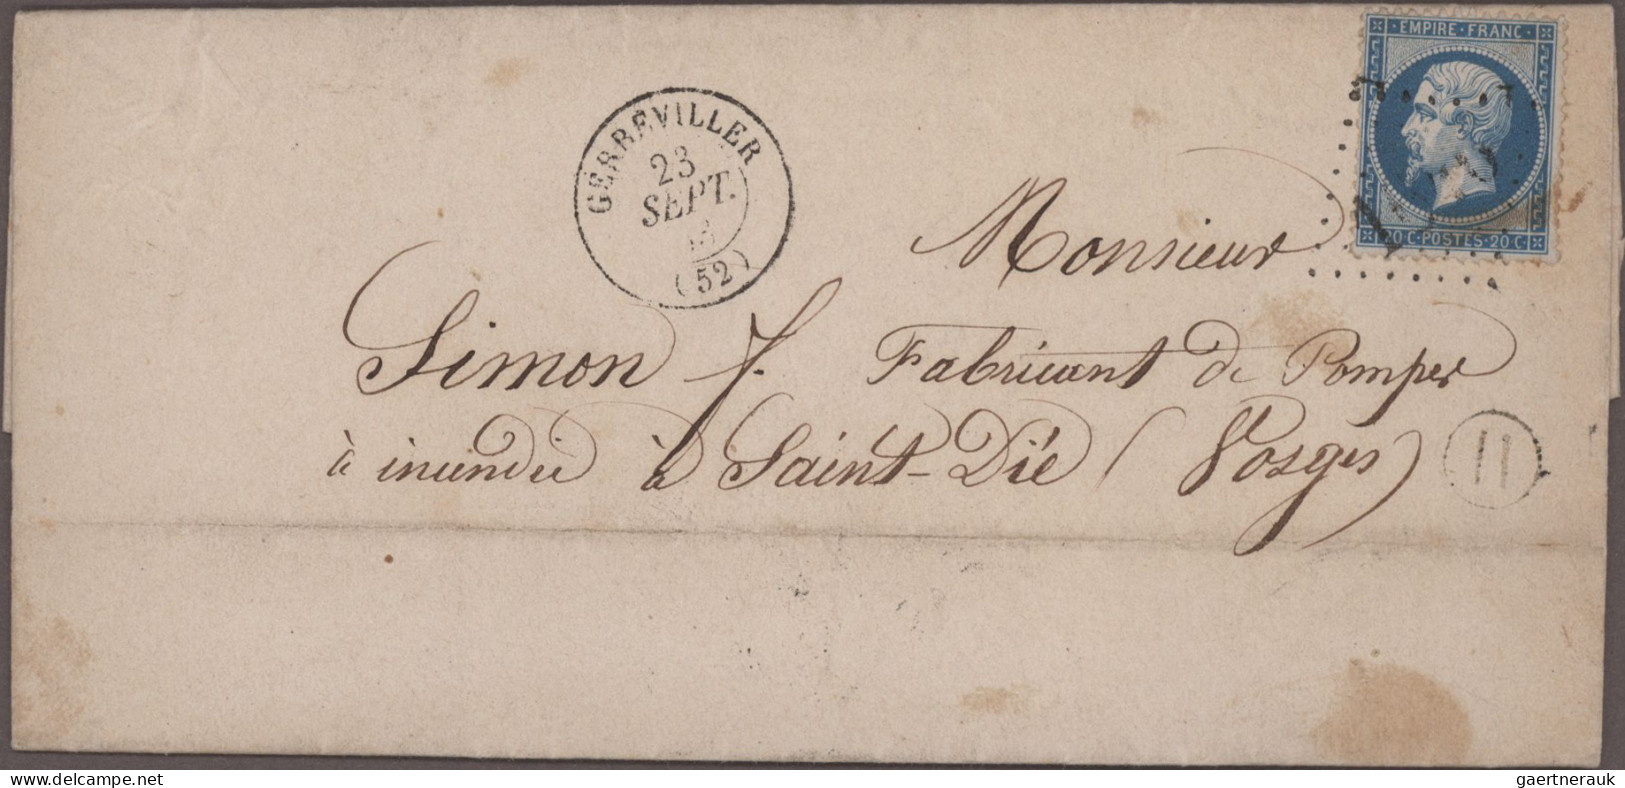 EMPIRE · FRANC ·
20 C · POSTES · 20 C ·
GERBÉVILLER
23
SEPT.
(52)
Monsieur
Simon J. Fabricant de Pompes
à incendie à Saint-Dié (Vosges)
11
delcampe.net
gaertnerauk